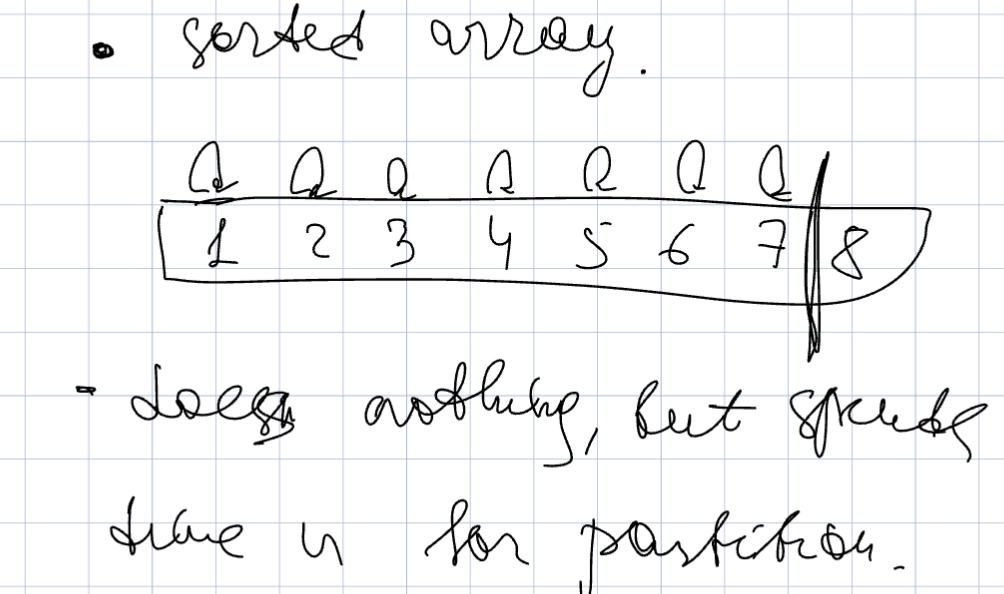 • sorted array.
1 2 3 4 5 6 7 8
- does nothing, but spends
time n for partition.